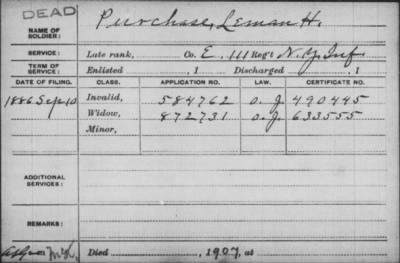 DEAD
NAME OF SOLDIER: Purchase, Leman H.
SERVICE: Late rank, Co. E, 111 Regt N. Y. Inf.
TERM OF SERVICE: Enlisted , 1 Discharged , 1
DATE OF FILING. CLASS. APPLICATION NO. LAW. CERTIFICATE NO.
1886 Sep 10 Invalid, 584762 O. J. 490445
Widow, 872731 O. J. 633555
Minor,
ADDITIONAL SERVICES:
REMARKS:
Died , 1907, at